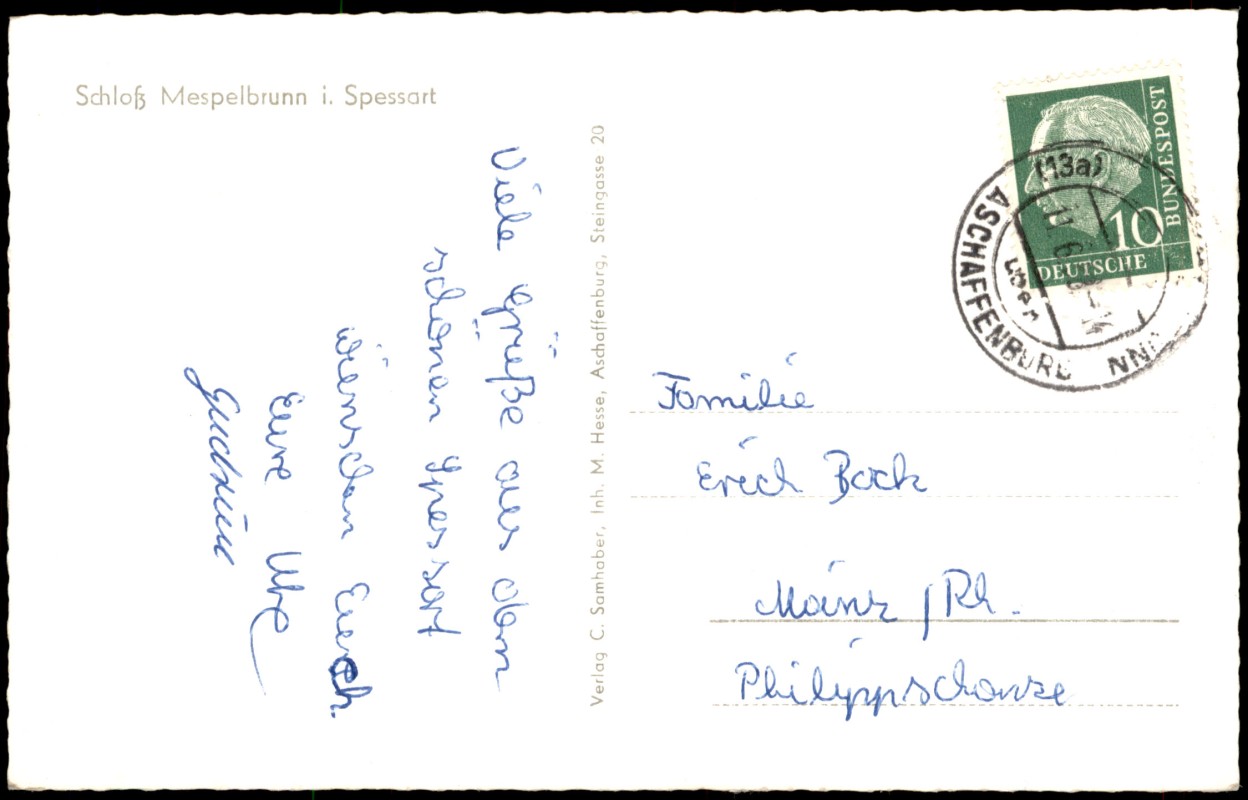 Schloß Mespelbrunn i. Spessart
Viele Grüße aus dem
schönen Spessart
wünschen Euch
Eure Ute
Gudrun
Verlag C. Samhaber, Inh. M. Hesse, Aschaffenburg, Steingasse 20
DEUTSCHE
BUNDESPOST
10
(13a)
über
ASCHAFFENBURG
Familie
Erich Bock
Mainz /Rh.
Philippschanze